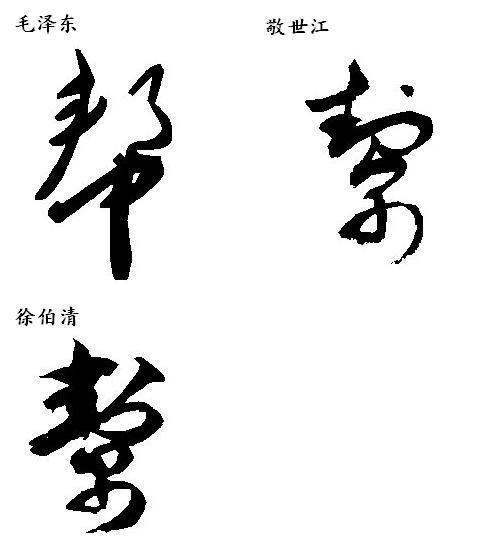 毛泽东 敬世江
帮 幫
徐伯清
幫